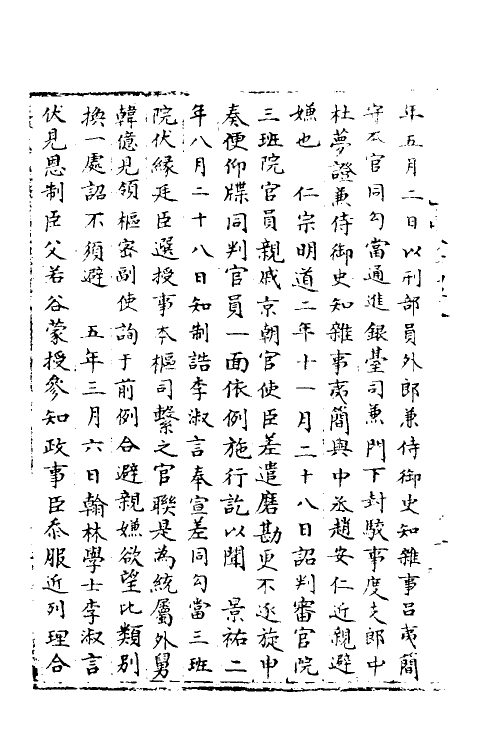 年五月二日以刑部員外郎兼侍御史知雜事呂夷簡
守本官同勾當通進銀臺司兼門下封駮事度支郎中
杜夢證兼侍御史知雜事夷簡與中丞趙安仁近親避
嫌也　仁宗明道二年十一月二十八日詔判審官院
三班院官員親戚京朝官使臣差遣磨勘更不逐旋申
奏便仰牒同判官員一面依例施行訖以聞　景祐二
年八月二十八日知制誥李淑言奉宣差同勾當三班
院伏緣廷臣選授事本樞司繫之官聯是為統屬外舅
韓億見領樞密副使詢于前例合避親嫌欲望比類別
換一處詔不須避　五年三月六日翰林學士李淑言
伏見恩制臣父若谷蒙授參知政事臣忝服近列理合